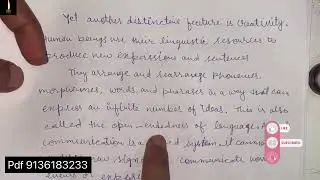 Yet another distinctive feature is creativity.
Human beings use their linguistic resources to
produce new expressions and sentences
They arrange and rearrange phonemes,
morphemes, words, and phrases in a way that can
express an infinite number of ideas. This is also
called the open-endedness of language. A
communication is a system. It cannot
new sign communicate
or
LIKE
SUBSCRIBE
Pdf 9136183233